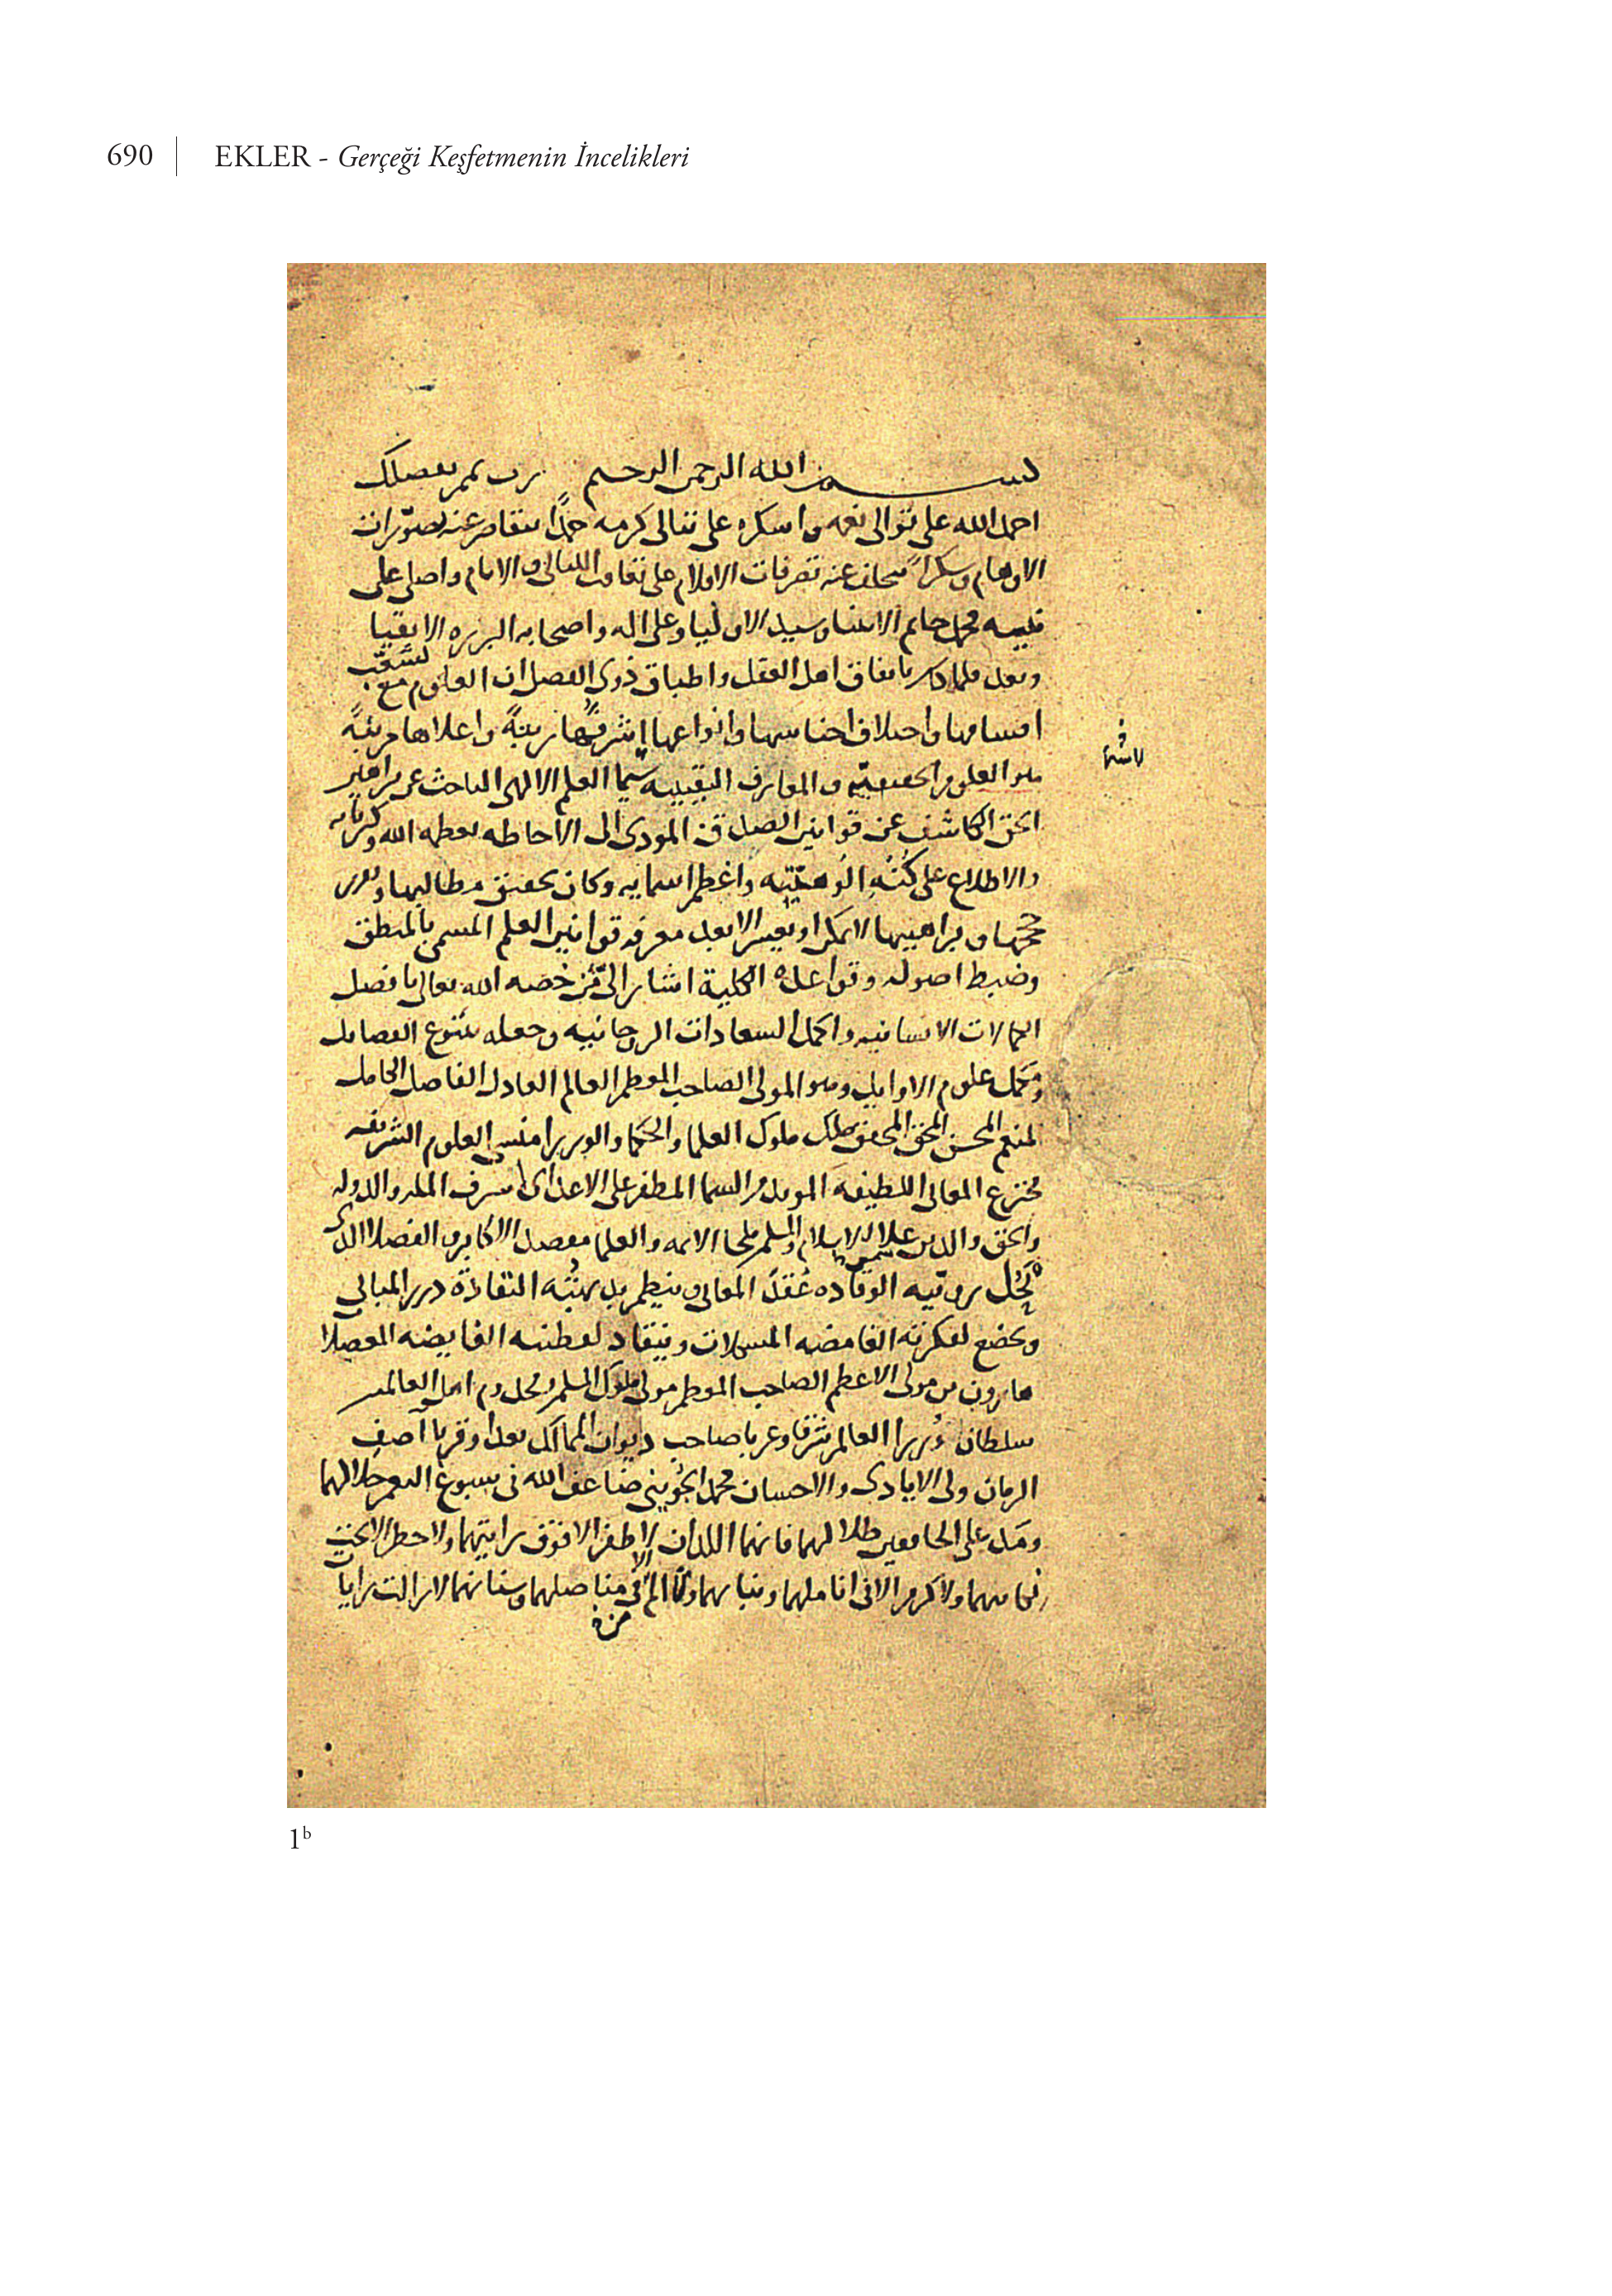 690 EKLER - Gerçeği Keşfetmenin İncelikleri
بسم الله الرحمن الرحيم رب تمم بفضلك
احمد الله على توالى نعمه واسكره على تتالى كرمه حمدًا يتقاصر عنه تصوّرات
الاوهام وسكرًا عنه تصرفات الاقلام على تعاقب الليالى والايام واصلى على
نبيه محمد خاتم الانبيا وسيد الاوليا وعلى اله واصحابه البرره الاتقيا
وبعد فلما كان باتفاق اهل العقل واطباق ذوى الفضل ان العلوم مع تشعّب
اقسامها واختلاف اجناسها وانواعها اشرفُها زينةً واعلاها مرتبةً
هو العلوم الحقيقيّه والمعارف اليقينيه سيّما العلم الالهى الباحث عن براهين
الحق الكاشف عن قوانين الصدق المودى الى الاحاطه بعظمه الله وكبريايه
والاطلاع على كُنْهِ الُوهيّتِه واعظم اسمايه وكان تحقيق مطالبها وتقرير
حججها وبراهينها لا يمكن او يعسر الا بعد معرفه قوانين العلم المسمى بالمنطق
وضبط اصوله وقواعده الكلية اشار الىّ مَنْ خصه الله تعالى بافضل
الكمالات الانسانيه واكمل السعادات الروحانيه وجعله ينبوع الفضايل
ومكمل علوم الاوايل وهو المولى الصاحب المعظم العالم العادل الفاضل الكامل
المنعم المحسن المحق المحقق ملك ملوك العلما والحكما والوزرا منشى العلوم الشريفه
مخترع المعانى اللطيفه المويد من السما المظفر على الاعداى شرف المله والدوله
والحق والدين علا الاسلام والمسلمين شمس ملجا الايمه والعلما مفضل الاكابر والفضلا الذى
تُحَلُّ برويّته الوقّاده عُقَدُ المعانى وينظم ببديهيَّته النقادة درر المبانى
وتخضع لفكرته الغامضه المشكلات وينقاد لفطنته الفايضه المعضلا
هارون بن مولى الاعظم الصاحب المعظم مولى ملوك المسلمين مخدوم اهل العالمين
سلطان وُزرا العالم شرقا وغربا صاحب ديوان الممالك بعدا وقربا آصف
الزمان ولى الايادى والاحسان محمد الجوينى ضاعف الله فى سبوغ النعم جلالهما
ومدّ على الخافقين ظلالهما فانهما اللذان لا ظفر الا فوق رايتهما ولا حظ الا تحت
ولا كرم الا فى اناملهما وبنانهما ولا الم الا فى مناصلهما وسنانهما لا زالت رايات
1b